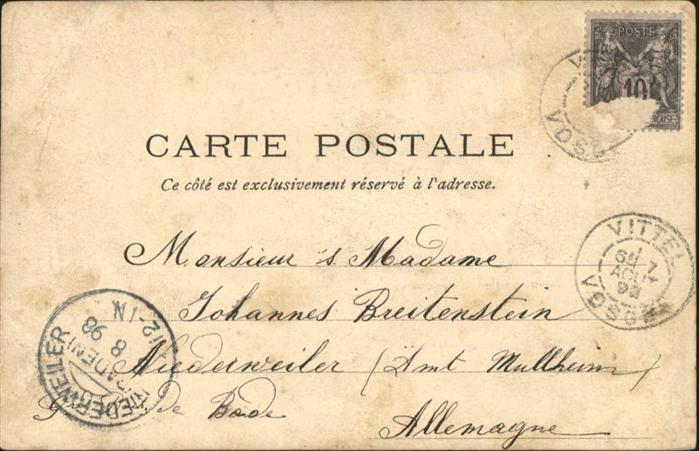 POSTE
10
VOSGES
CARTE POSTALE
Ce côté est exclusivement réservé à l'adresse.
VITTEL
7
AOUT
98
VOSGES
Monsieur & Madame
Johannes Breitenstein
Niederweiler (Amt Mullheim)
de Bade
Allemagne
NIEDERWEILER
(BADEN)
8
98
12-1N